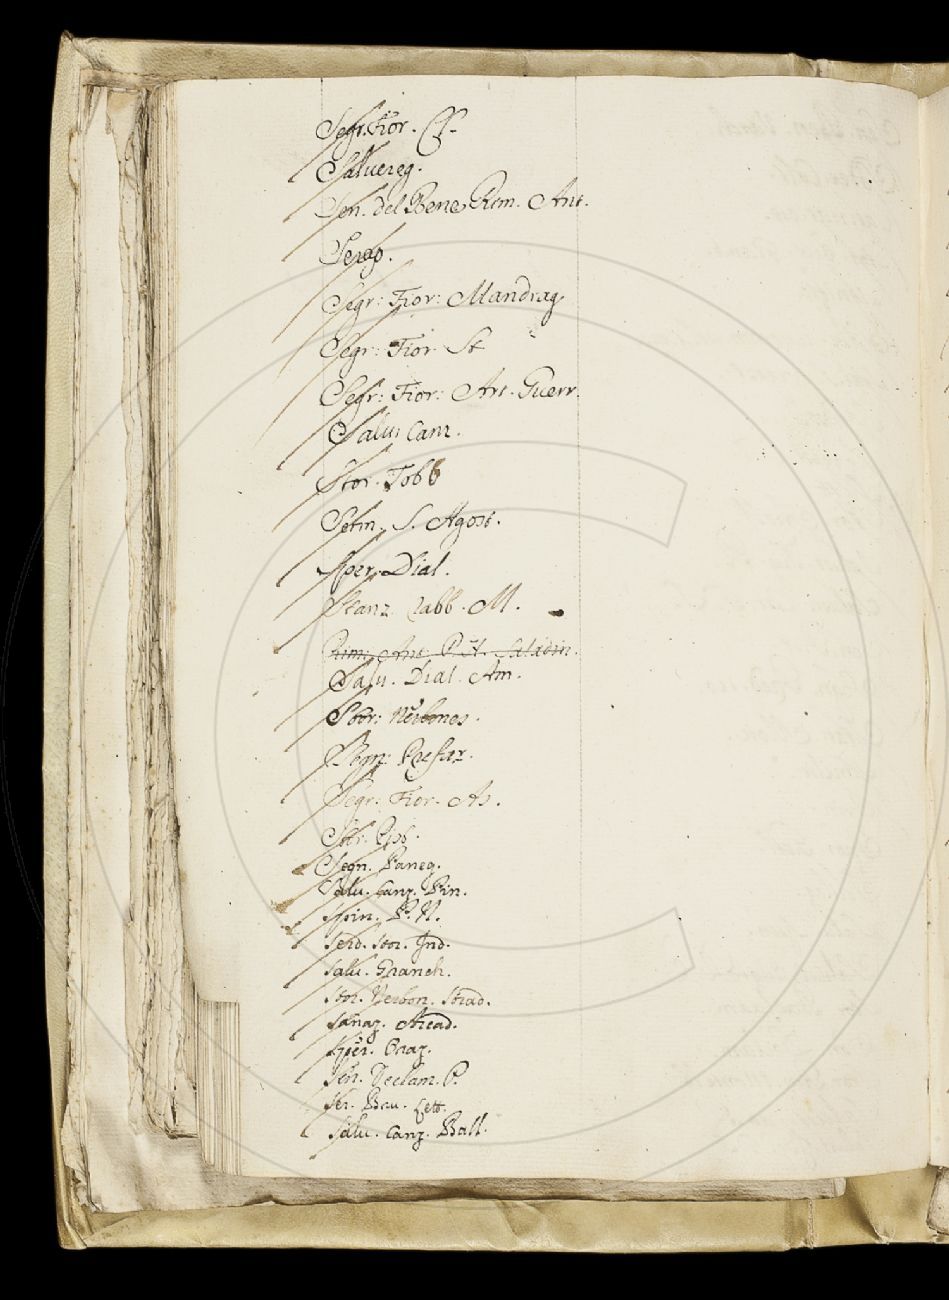 Segr. Fior. Cl.
Salvereg.
Sen. del Bene Rim. Ant.
Serap.
Segr: Fior: Mandrag
Segr: Fior St
Segr: Fior: Art. Guerr.
Salv: Canz.
Stor. Tobb
Serm. S. Agost.
Sper. Dial.
Stanz. Rabb. M.
Rim: Ant. P. N. Saladin.
Salv. Dial. Am.
Stor: Nerbones.
Segn: Prefaz.
Segr: Fior. As.
Stor. Pist.
Segn. Paneg.
Salv. Canz. Pin.
Spin. P. N.
Serd. Stor. Ind.
Salv. Granch.
Stor. Nerbon. Strad.
Sanaz. Arcad.
Sper. Oraz.
Sen. Declam. P.
Ser. Brun. Lett.
Salv. Canz. Ball.